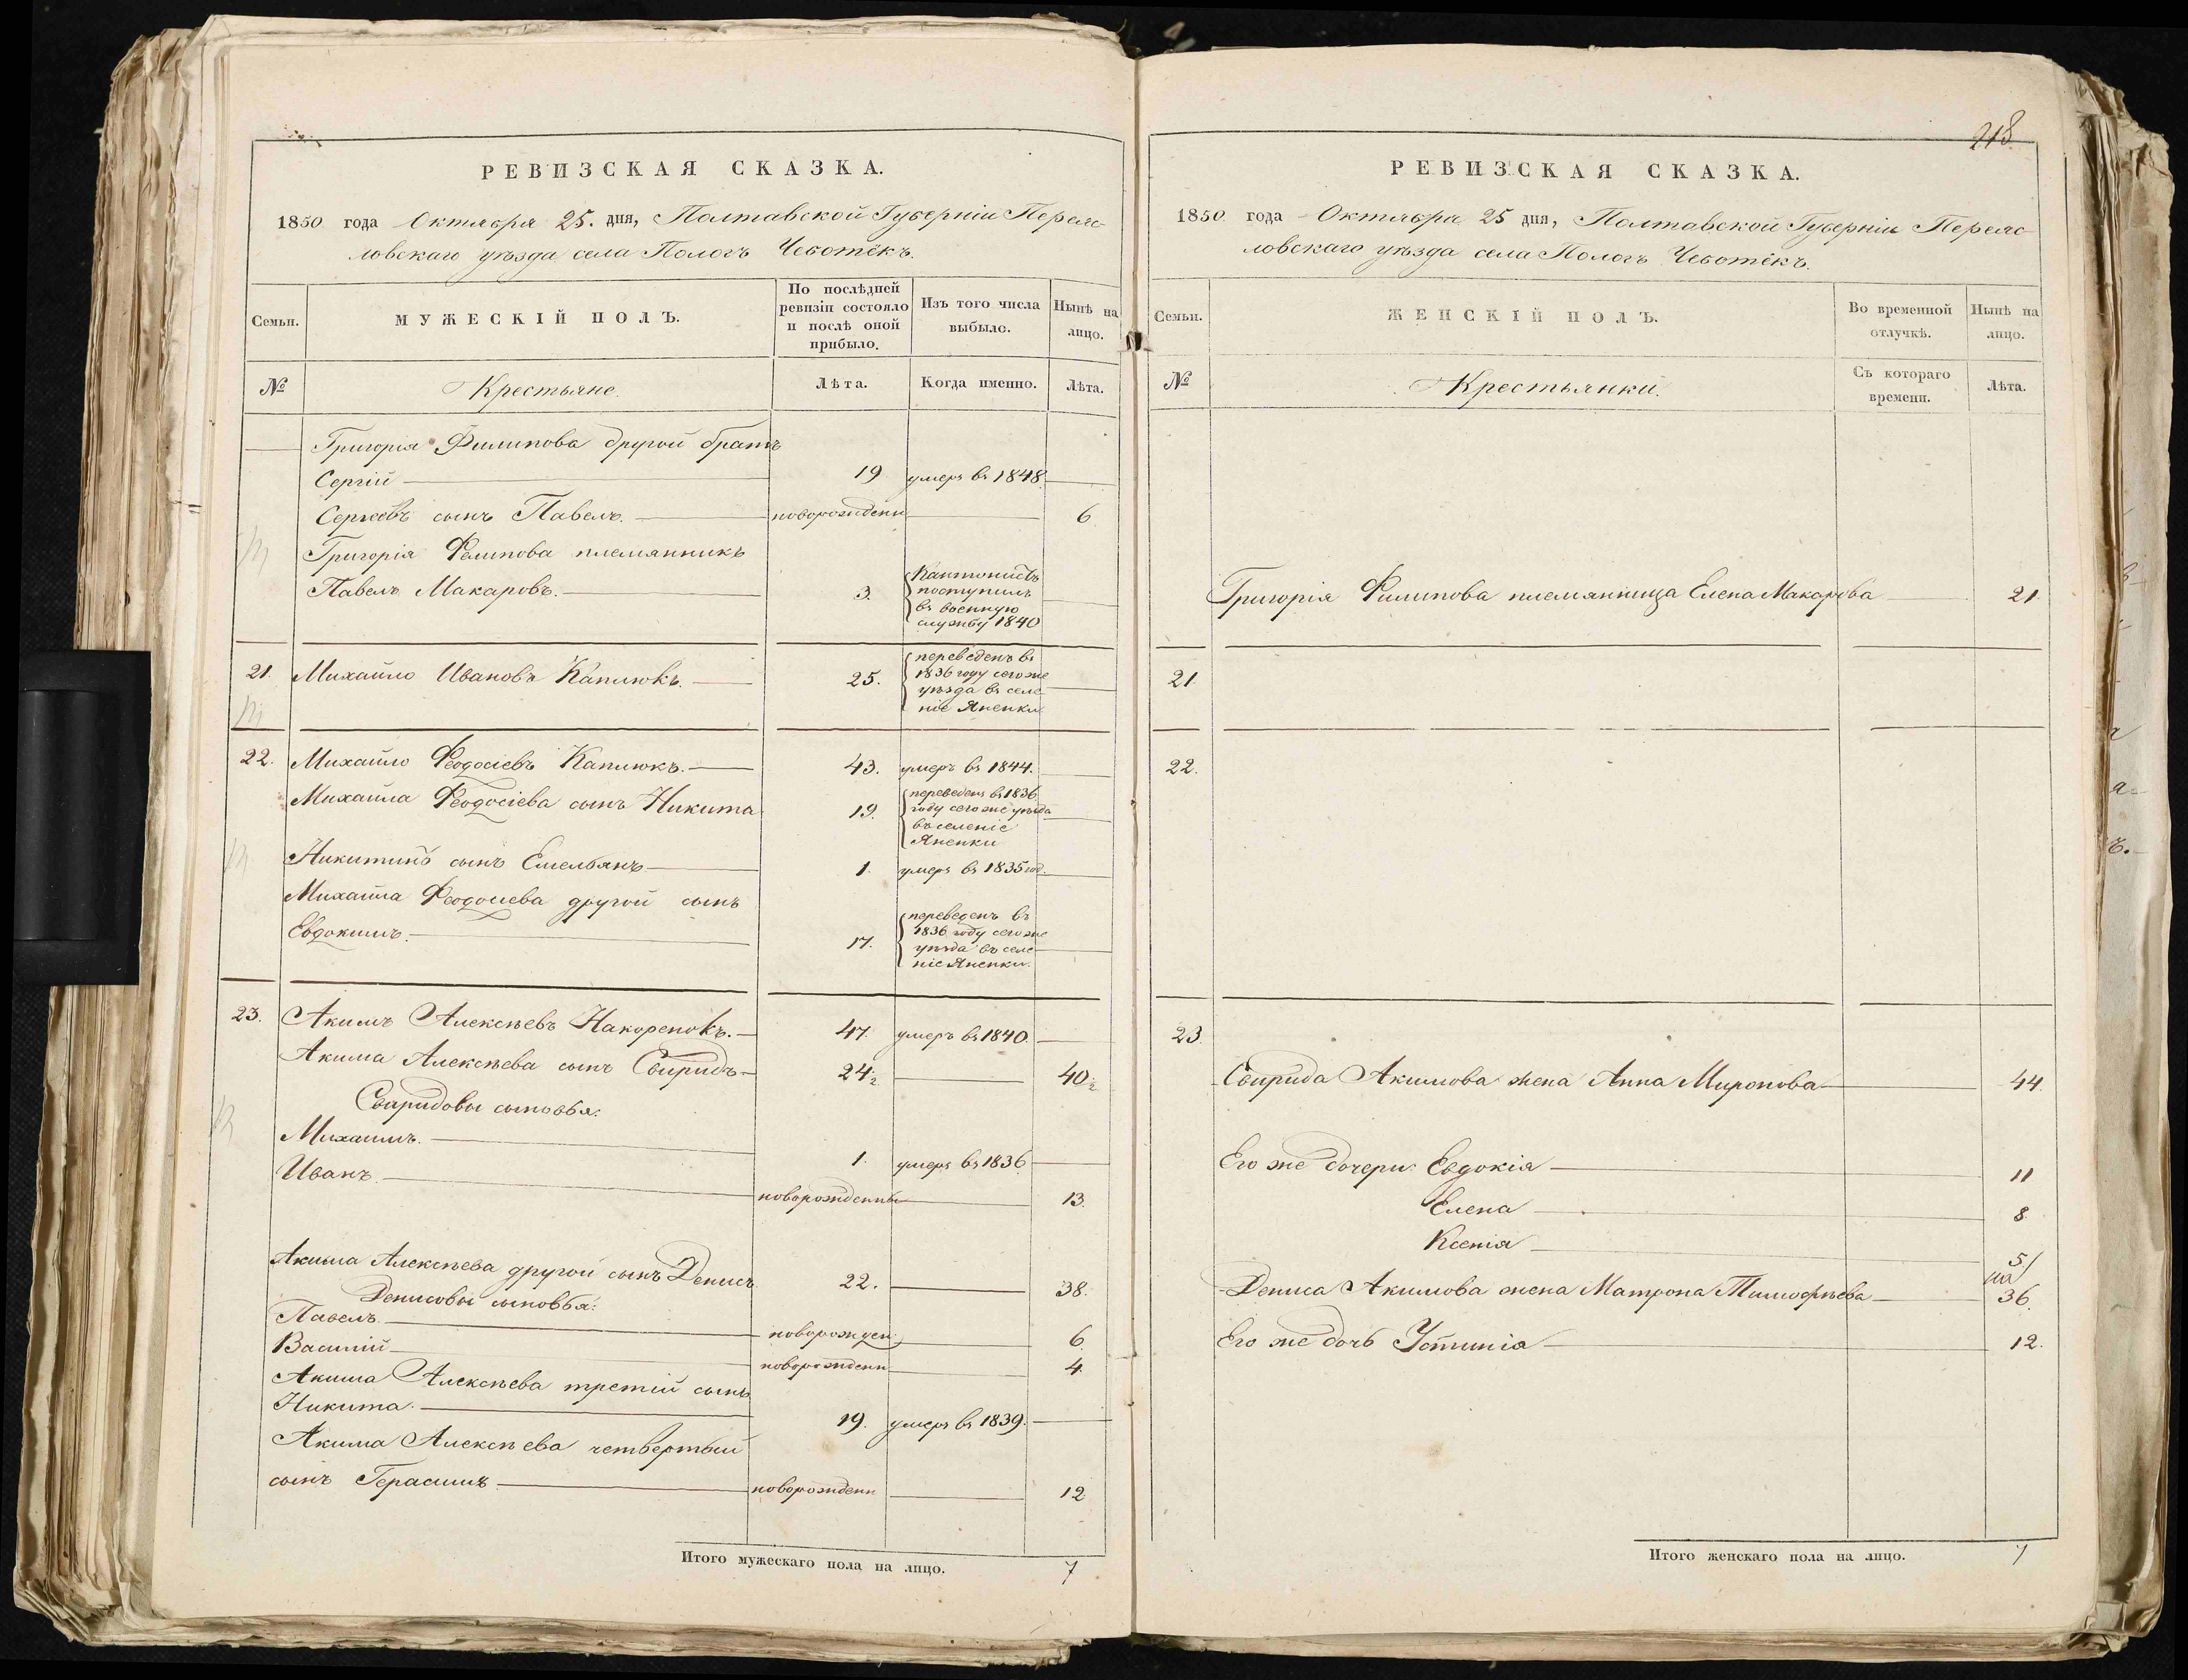 РЕВИЗСКАЯ СКАЗКА.
1850 года Октября 25. дня, Полтавской Губерніи Переяс-
ловскаго уѣзда села Пологъ Чеботёкъ.
Семьи.
МУЖЕСКІЙ ПОЛЪ.
По послѣдней
ревизіи состояло
и послѣ оной
прибыло.
Изъ того числа
выбыло.
Нынѣ на
лицо.
№
Крестьяне.
Лѣта.
Когда именно.
Лѣта.
Григорія Филипова другой братъ
Сергій 19 умеръ въ 1848.
Сергѣевъ сынъ Павелъ. новорожденн 6
Григорія Филипова племянникъ
Павелъ Макаровъ. 3. Кантонистъ
поступилъ
въ военную
службу 1840
21. Михайло Ивановъ Каплюкъ. 25. переведенъ въ
1836 году сего же
уѣзда въ селе
ніе Яненки
22. Михайло Феодосіевъ Каплюкъ. 43. умеръ въ 1844.
Михайла Феодосіева сынъ Никита 19. переведенъ въ 1836
году сего же уѣзда
въ селеніе
Яненки
Никитинъ сынъ Емельянъ 1. умеръ въ 1835 год.
Михайла Феодосіева другой сынъ
Евдокимъ. 17. переведенъ въ
1836 году сего же
уѣзда въ селе
ніе Яненки.
23. Акимъ Алексѣевъ Накоренокъ. 47. умеръ въ 1840.
Акима Алексѣева сынъ Свиридъ 24½ 40½
Свиридовы сыновья:
Михаилъ. 1. умеръ въ 1836
Иванъ новорожденны 13.
Акима Алексѣева другой сынъ Денисъ 22. 38.
Денисовы сыновья:
Павелъ. новорожден 6
Василій новорожденн 4.
Акима Алексѣева третій сынъ
Никита. 19. умеръ въ 1839.
Акима Алексѣева четвертый
сынъ Герасимъ новорожденн 12
Итого мужескаго пола на лицо. 7
218
РЕВИЗСКАЯ СКАЗКА.
1850 года Октября 25 дня, Полтавской Губерніи Переяс
ловскаго уѣзда села Пологъ Чеботёкъ.
Семьи.
ЖЕНСКІЙ ПОЛЪ.
Во временной
отлучкѣ.
Нынѣ на
лицо.
№
Крестьянки.
Съ котораго
времени.
Лѣта.
Григорія Филипова племянница Елена Макарова 21
21
22.
23
Свирида Акимова жена Анна Миронова 44.
Его же дочери: Евдокія 11
Елена 8
Ксенія 5
Дениса Акимова жена Матрона Тимофѣева 36.
Его же дочь Устинія 12.
Итого женскаго пола на лицо. 7